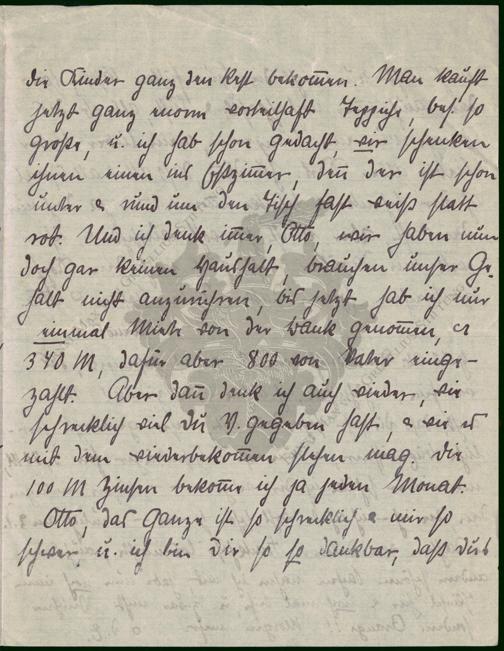 die Kinder ganz den Rest bekom̅en. Man kauft
jetzt ganz enorm vorteilhaft Teppiche, bes. so
große, u. ich hab schon gedacht, wir schenken
ihnen einen ins Eßzim̅er, den̅ der ist schon
unter & rund um den Tisch fast weiß statt
rot. Und ich denk im̅er, Otto, wir haben nun
doch gar keinen Haushalt, brauchen unser Ge-
halt nicht anzurühren, bis jetzt hab ich nur
einmal Miete von der Bank genom̅en, ca
340 M, dafür aber 800 von Vater einge-
zahlt. Aber dan̅ denk ich auch wieder, wie
schrecklich viel du V. gegeben hast, & wie es
mit dem wiederbekommen stehen mag. Die
100 M Zinsen bekom̅e ich ja jeden Monat.
Otto, das Ganze ist so schrecklich & mir so
schwer, u. ich bin Dir so so dankbar, daß du's